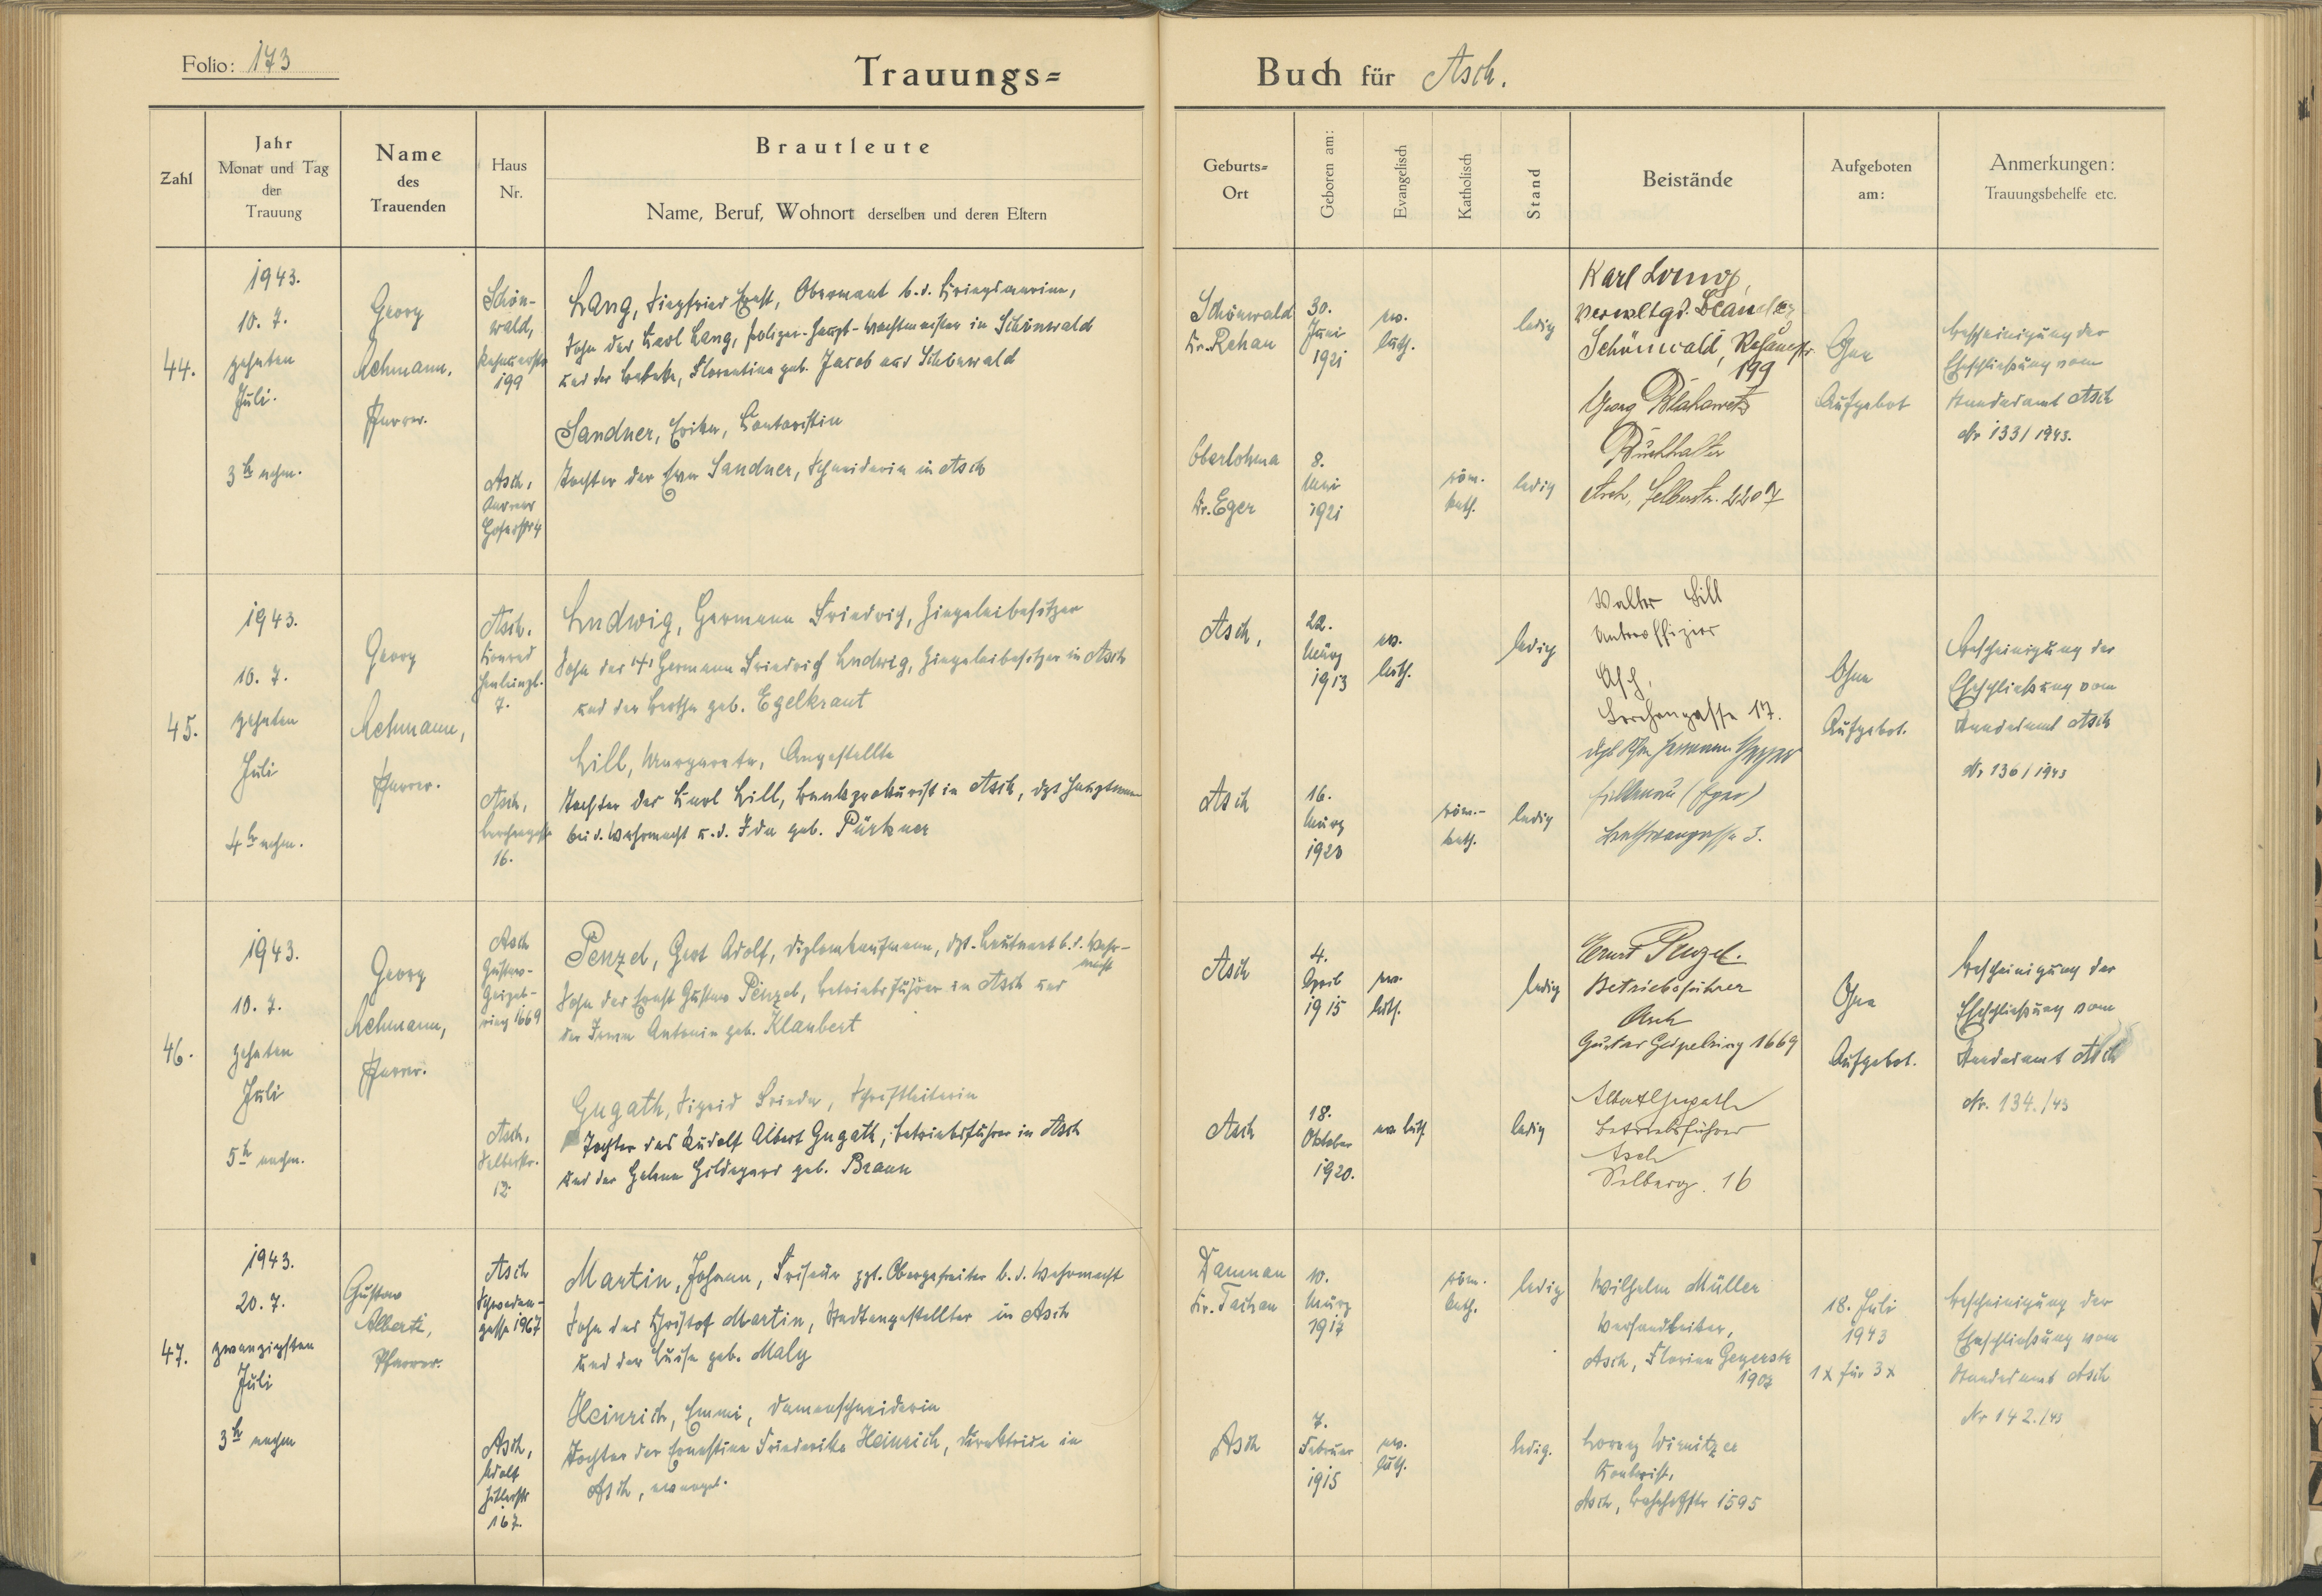 Folio: 173
Trauungs=
Buch für Asch.
Zahl
Jahr
Monat und Tag
der
Trauung
Name
des
Trauenden
Haus
Nr.
Brautleute
Name, Beruf, Wohnort derselben und deren Eltern
Geburts=
Ort
Geboren am:
Evangelisch
Katholisch
Stand
Beistände
Aufgeboten
am:
Anmerkungen:
Trauungsbehelfe etc.
44.
1943.
10. 7.
zehnten
Juli.
3 h nchm.
Georg
Pfarrer.
Schön-
wald,
199
Lang, Siegfried Ernst, Obermaat b. d. Kriegsmarine,
Sohn des Karl Lang, Polizei-Haupt-Wachtmeister in Schönwald
und der Florentine geb. Jacob aus Schönwald
Asch,
Sandner, Erika, Kontoristin
Tochter der Eva Sandner, Schneiderin in Asch
Schönwald
Kr. Rehau
30.
Juni
1921
ev.
luth.
ledig
Oberlohma
Kr. Eger
8.
1921
röm.
kath.
ledig
Schönwald,
199
Georg
Buchhalter
Asch, Selberstr. 2207
Ohne
Aufgebot
Bescheinigung der
Eheschließung vom
Standesamt Asch
Nr 133/1943.
45.
1943.
10. 7.
zehnten
Juli
4 h nchm.
Georg
Pfarrer.
Asch.
Konrad
7.
Ludwig, Hermann Friedrich, Ziegeleibesitzer
Sohn des Hermann Friedrich Ludwig, Ziegeleibesitzer in Asch
und der Bertha geb. Egelkraut
Asch,
Lerchengasse
16.
Lill, Margarete, Angestellte
Tochter des Karl Lill, Bankprokurist in Asch, dzt Hauptmann
bei d. Wehrmacht u. d. Ida geb. Pürkner
Asch,
22.
März
1913
ev.
luth.
ledig
Asch
16.
März
1920
röm.-
kath.
ledig
Walter Lill
Unteroffizier
Asch,
Lerchengasse 17.
(Eger)
3.
Ohne
Aufgebot.
Bescheinigung der
Eheschließung vom
Standesamt Asch
Nr 136/1943
46.
1943.
10. 7.
zehnten
Juli
5 h nachm.
Georg
Pfarrer.
Asch
Gustav-
Geipel-
ring 1669
Penzel, Gert Adolf, Diplomkaufmann, dzt. Leutnant b. d. Wehr-
macht
Sohn des Ernst Gustav Penzel, Betriebsführer in Asch und
der Irma Antonie geb. Klaubert
Asch,
Selberstr.
12
Gugath, Sigrid Frieda, Schriftleiterin
Tochter des Rudolf Albert Gugath, Betriebsführer in Asch
und der Helene Hildegard geb. Braun
Asch
4.
April
1915
ev.
luth.
ledig
Asch
18.
Oktober
1920.
ev. luth.
ledig
Ernst Penzel.
Betriebsführer
Asch
Gustav Geipelring 1669
Albert Gugath
Betriebsführer
Asch
16
Ohne
Aufgebot.
Bescheinigung der
Eheschließung vom
Standesamt Asch
Nr. 134./43
47.
1943.
20. 7.
zwanzigsten
Juli
3 h nachm
Gustav
Alberti,
Pfarrer.
Asch
Schweden-
gasse 1967
Martin, Johann, Friseur zzt. Obergefreiter b. d. Wehrmacht
Sohn des Christof Martin, Stadtangestellter in Asch
und der Luise geb. Maly
Asch,
Adolf
Hitlerstr
167.
Heinrich, Emmi, Damenschneiderin
Tochter der Ernestine Friederike Heinrich, Direktrice in
Asch, evangel.
Damnau
Kr. Tachau
10.
März
1917
röm.
kath.
ledig
Asch
7.
Februar
1915
ev.
luth.
ledig.
Wilhelm Müller
Versandleiter,
Asch, Florian Geyerstr
1907
Lorenz Wirnitzer
Kontorist,
Asch, Bahnhofstr 1595
18. Juli
1943
1 x für 3 x
Bescheinigung der
Eheschließung vom
Standesamt Asch
Nr 142./43